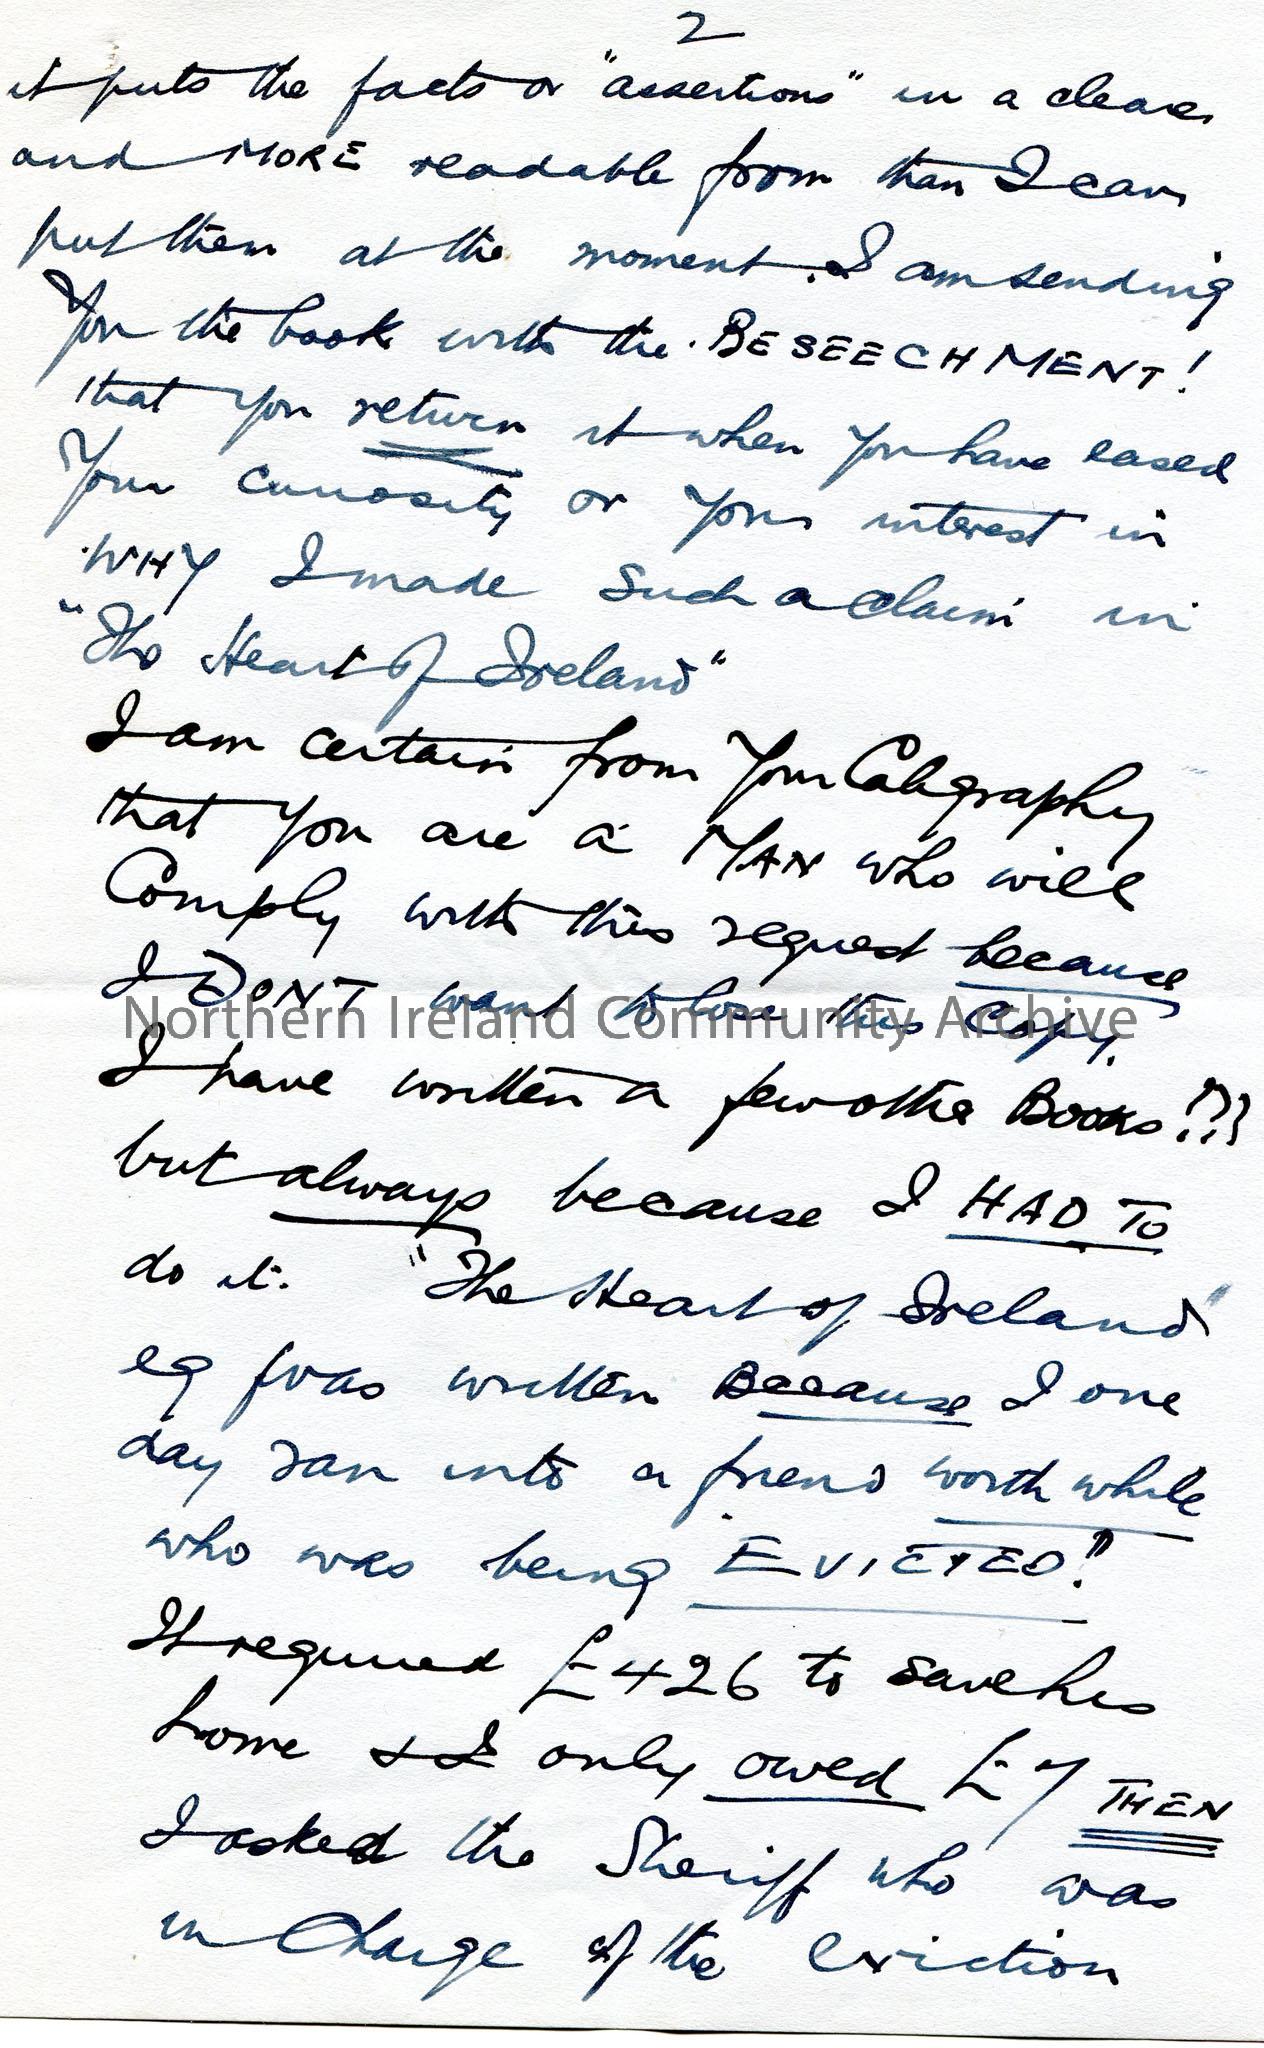 2
it puts the facts or "assertions" in a clearer
and MORE readable from than I can
put them at the moment. I am sending
You the book with the BESEECHMENT!
that you return it when you have eased
Your curiosity or your interest in
WHY I made such a claim in
"The Heart of Ireland"
I am certain from Your Caligraphy
that you are a MAN who will
Comply with this request because
I DONT want to lose this Copy.
Northern Ireland Community Archive
I have written a few other Books!?!
but always because I HAD TO
do it. "The Heart of Ireland"
eg was written Because I one
day ran into a friend worth while
who was being "EVICTED!"
It required £426 to save his
home & I only owed £7 THEN
I asked the Sheriff who was
in Charge of the eviction